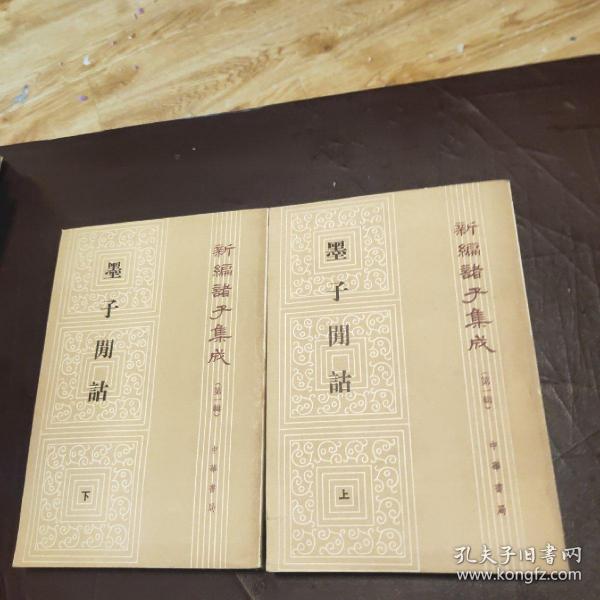 新編諸子集成
（第一輯）
墨子閒詁
下
中華書局
新編諸子集成
（第一輯）
墨子閒詁
上
中華書局
孔夫子旧書网
www.kongfz.com